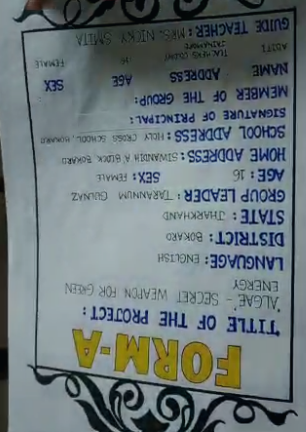 FORM-A
TITLE OF THE PROJECT:
"ALGAE"- SECRET WEAPON FOR GREEN
ENERGY
LANGUAGE: ENGLISH
DISTRICT: BOKARO
STATE: JHARKHAND
GROUP LEADER: TARANNUM GULNAZ
AGE: 16 SEX: FEMALE
HOME ADDRESS: SIWANDIH A BLOCK BOKARO
SCHOOL ADDRESS: HOLY CROSS SCHOOL, BOKARO
SIGNATURE OF PRINCIPAL:
MEMBER OF THE GROUP:
NAME ADDRESS AGE SEX
ADITI 16 FEMALE
GUIDE TEACHER: MRS. NICKY SMITA